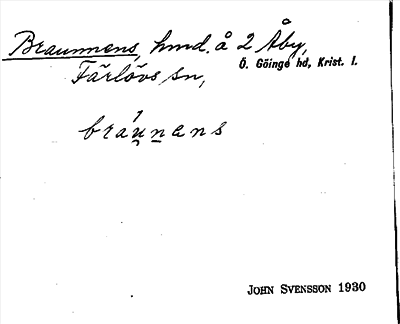 Braunnens, hmd. å 2 Åby,
Färlövs sn,
Ö. Göinge hd, Krist. l.
bráu̯n̲ens
JOHN SVENSSON 1930